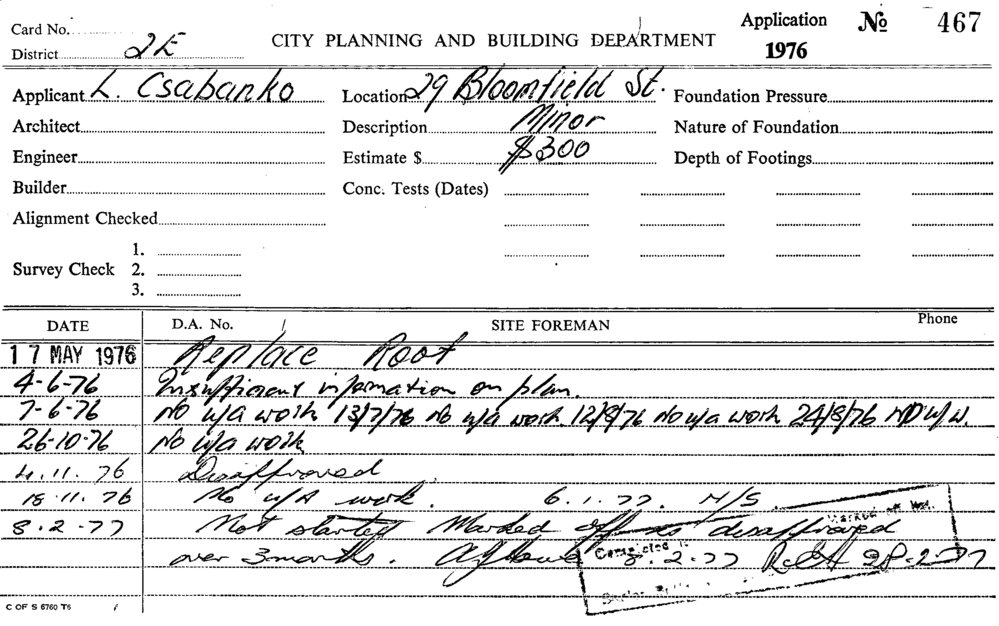 Card No. Application No 467
District 2E CITY PLANNING AND BUILDING DEPARTMENT 1976
Applicant L. Csabanko Location 29 Bloomfield St. Foundation Pressure
Architect Description Minor Nature of Foundation
Engineer Estimate $ $300 Depth of Footings
Builder Conc. Tests (Dates)
Alignment Checked
1.
Survey Check 2.
3.
DATE D.A. No. SITE FOREMAN Phone
17 MAY 1976 Replace Roof
4-6-76 Insufficient information on plan.
7-6-76 No u/a work 13/7/76 No u/a work 12/8/76 No u/a work 24/8/76 NO u/w.
26-10-76 No u/a work
4.11.76 Disapproved
18.11.76 No u/A work. 6.1.77 N/S
8.2.77 Not started Marked off as disapproved
over 3 months. 8.2.77 28-2-77
Completed
C OF S 6760 T6